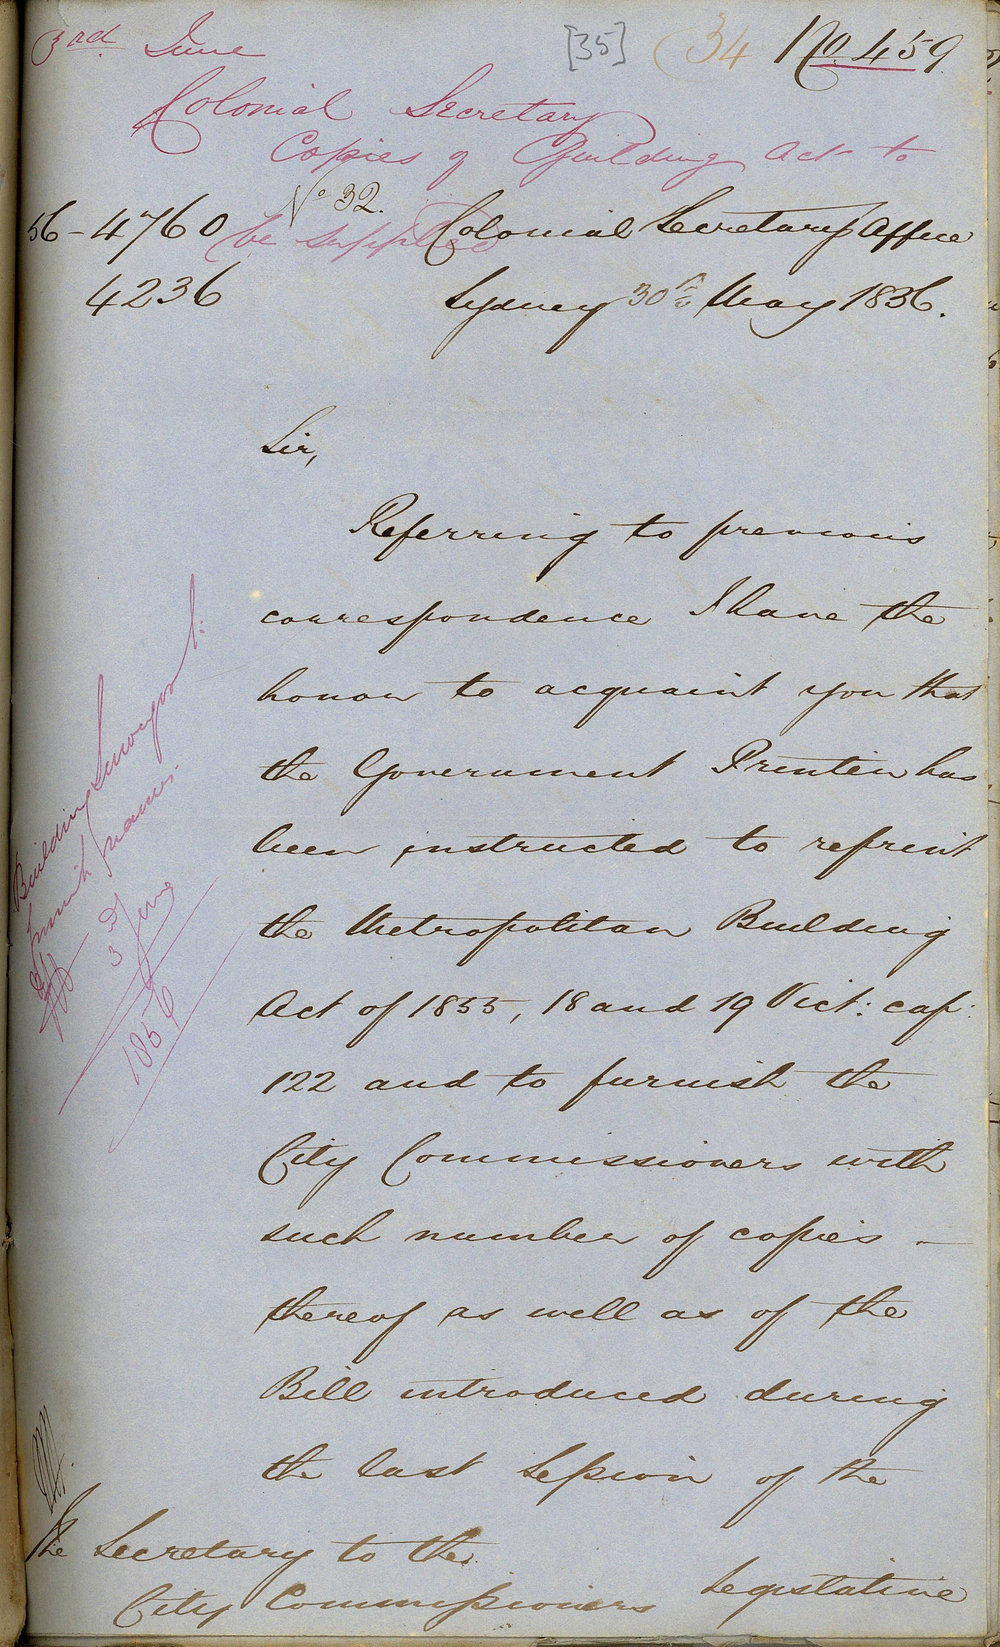 3rd. June [35] 34 No. 459
Colonial Secretary
Copies of Building Act to
be supplied
No 32.
56-4760 Colonial Secretary's Office
4236 Sydney 30th May 1856.
Sir,
Referring to previous
correspondence I have the
honor to acquaint you that
the Government Printer has
been instructed to reprint
the Metropolitan Building
Act of 1855, 18 and 19 Vict: cap:
122 and to furnish the
City Commissioners with
such number of copies -
thereof as well as of the
Bill introduced during
the last Session of the
Building Surveyor
3 June
1856
The Secretary to the
City Commissioners
Legislative